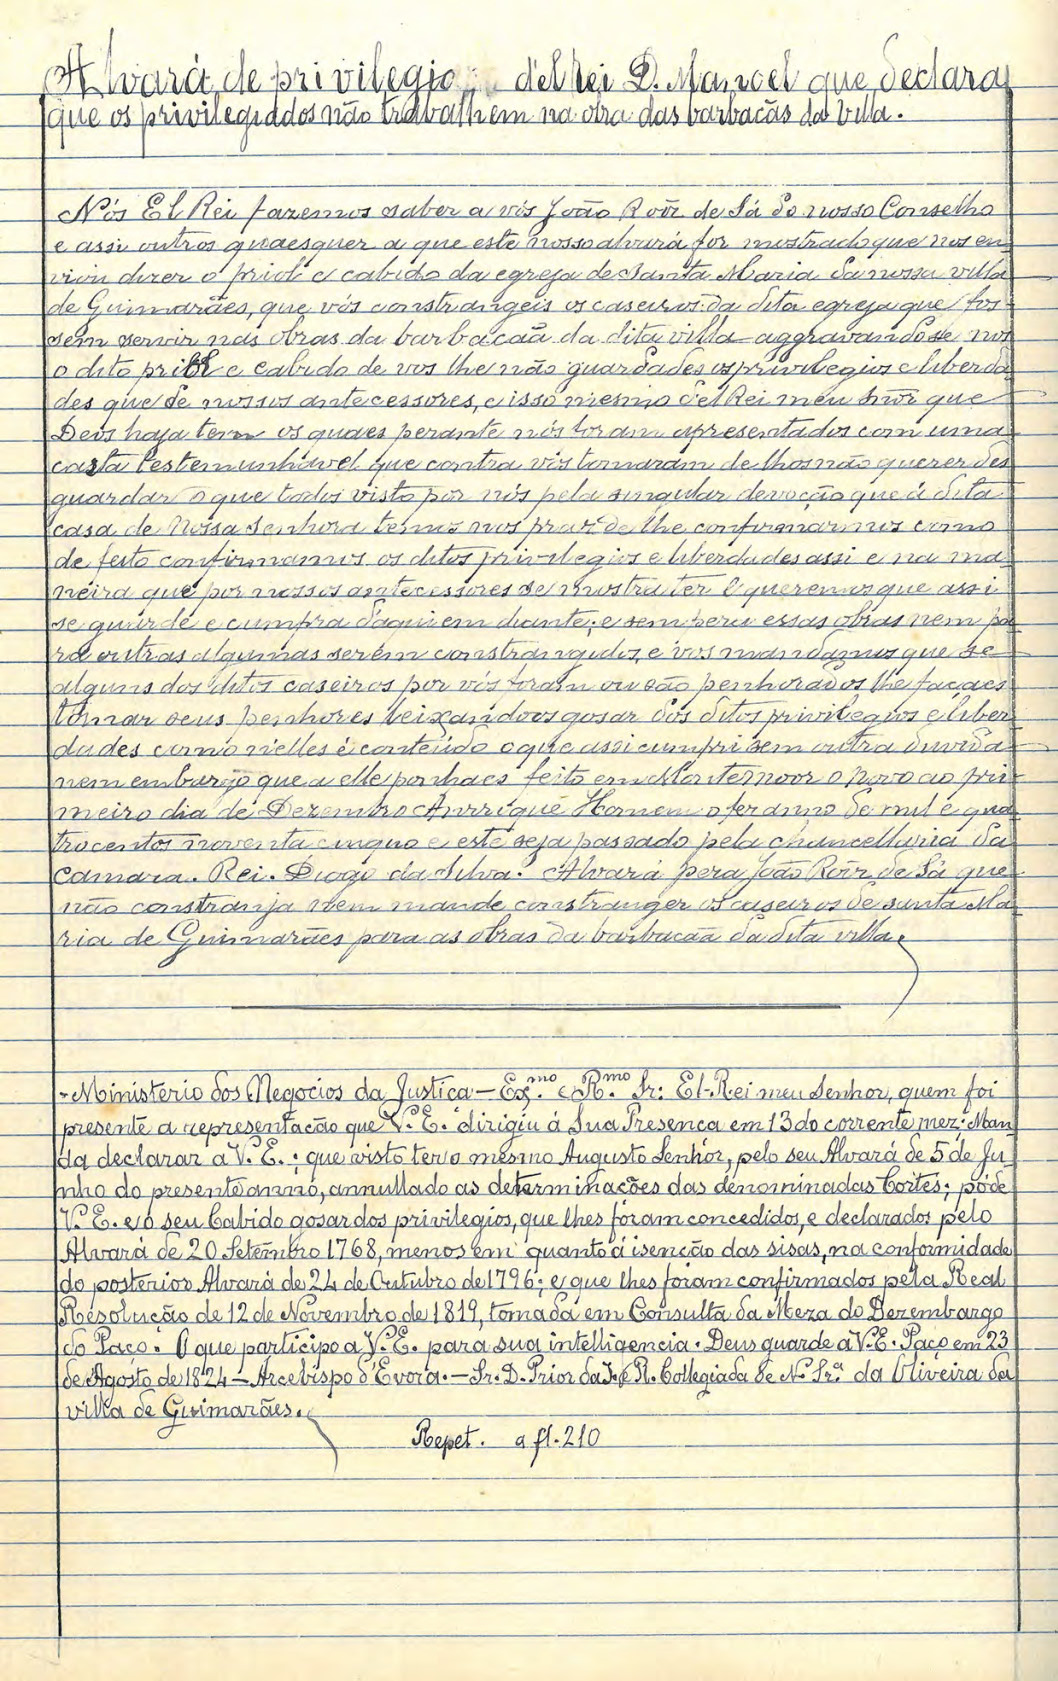 Alvará de privilegio d'el Rei D. Manoel que declara
que os privilegiados não trabalhem na obra das barbacãs da Villa.
Nós El Rei fazemos saber a vós João Roiz de Sá do nosso Conselho
e assi outros quaesquer a que este nosso alvará for mostrado que nos en-
viou dizer o priol e cabido da egreja de Santa Maria da nossa villa
de Guimarães, que vós constrangeis os caseiros da dita egreja que fos-
sem servir nas obras da barbacaã da dita villa aggravando se nos
o dito priol e cabido de vos lhe não guardades os privilegios e liberda
des que de nossos antecessores, e isso mesmo del Rei meu Snõr que
Deos haja tem os quaes perante nós foram apresentados com uma
carta testemunhavel que contra vós tomaram de lhos não querer des
guardar o que todo visto por nós pela singular devoção que á dita
casa de Nossa Senhora temos nos praz de lhe confirmarmos como
de feito confirmamos os ditos privilegios e liberdades assi e na ma-
neira que por nossos antecessores se mostra ter e queremos que assi
se guarde e cumpra daqui em diante; e sem pera essas obras nem pa
ra outras algumas serem constrangidos, e vos mandamos que se
alguns dos ditos caseiros por vós foram ou são penhorados lhe façaes
tomar seus penhores leixandoos gosar dos ditos privilegios e liber
dades como n'elles é conteudo o que assi cumpri sem outra duvida
nem embargo que a elle ponhaes feito em Monte moor o novo ao pri-
meiro dia de Dezembro Anrrique Homem o fez anno de mil e qua
trocentos noventa cinquo e este seja passado pela chancellaria da
Camara. Rei. Diogo da Silva. Alvará pera João Roiz de Sá que
não constranja nem mande constranger os caseiros de santa Ma
ria de Guimarães para as obras da barbacaã da dita villa.
-Ministerio dos Negocios da Justiça—Ex.mo e R.mo Sr: El-Rei meu Senhor, quem foi
presente a representação que V. E. dirigiu á Sua Presença em 13 do corrente mez: Man
da declarar a V. E.; que visto ter o mesmo Augusto Senhor, pelo seu Alvará de 5 de Ju-
nho do presente anno, annullado as determinações das denominadas Cortes; póde
V. E. e o seu Cabido gosar dos privilegios, que lhes foram concedidos, e declarados pelo
Alvará de 20 Setembro 1768, menos em quanto á isenção das sisas, na conformidade
do posterior Alvará de 24 de Outubro de 1796; e que lhes foram confirmados pela Real
Resolução de 12 de Novembro de 1819, tomada em Consulta da Meza do Dezembargo
do Paço. O que participo a V. E. para sua intelligencia. Deus guarde a V. E. Paço em 23
de Agosto de 1824—Arcebispo d'Evora.—Sr. D. Prior da I. e R. Collegiada de N. Sr.a da Oliveira da
villa de Guimarães.
Repet. a fl. 210